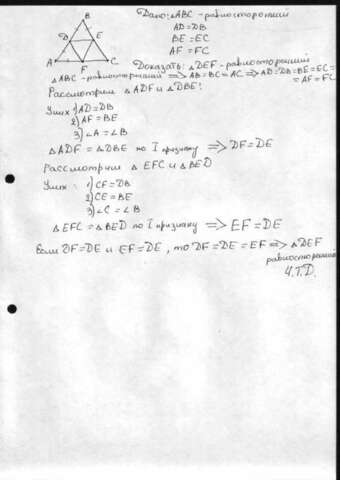 B
D
E
A
F
C
Дано: △ABC - равносторонний
AD=DB
BE=EC
AF=FC
Доказать: △DEF - равносторонний
△ABC - равносторонний => AB=BC=AC => AD=DB=BE=EC=
=AF=FC
Рассмотрим △ADF и △DBE:
У них 1) AD=DB
2) AF=BE
3) ∠A=∠B
△ADF = △DBE по I признаку => DF=DE
Рассмотрим △ EFC и △BED
У них: 1) CF=DB
2) CE=BE
3) ∠C=∠B
△EFC=△BED по I признаку => EF=DE
Если DF=DE и EF=DE, то DF=DE=EF => △DEF
равносторонний
Ч.Т.Д.